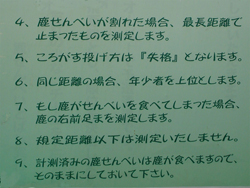 4、鹿せんべいが割れた場合、最長距離で
止まったものを測定します。
5、ころがす投げ方は『失格』となります。
6、同じ距離の場合、年少者を上位とします。
7、もし鹿がせんべいを食べてしまった場合、
鹿の右前足までを測定します。
8、規定距離以下は測定いたしません。
9、計測済みの鹿せんべいは鹿が食べますので、
そのままにしておいて下さい。